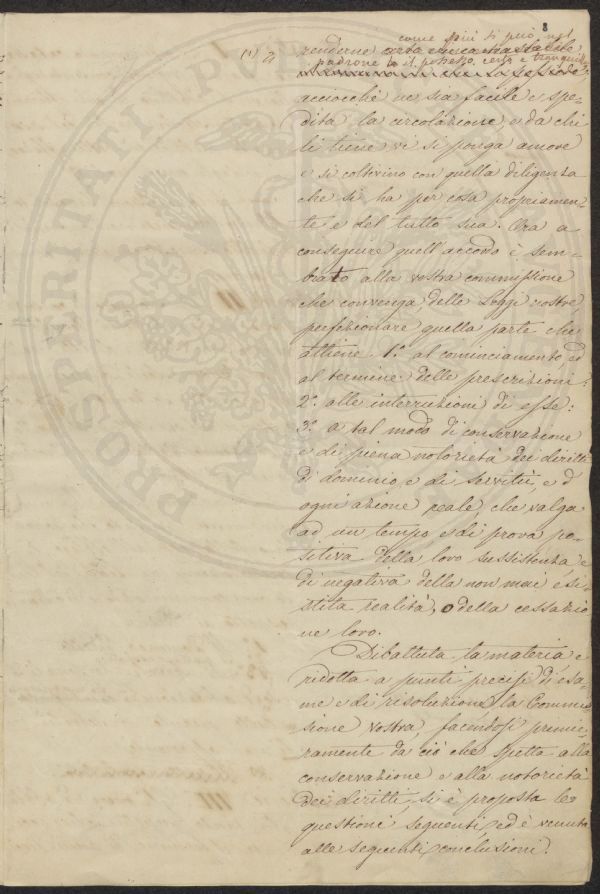 8
come più si può, nel
(1) 2) renderne
padrone il possesso, certo e tranquillo
acciocchè ne sia facile e spe-
dita la circolazione, e da chi
li tiene vi si ponga amore
e si coltivino con quella diligenza
che si ha per cosa propriamen-
te e del tutto sua. Ora a
conseguire quell'accordo è sem-
brato alla vostra commissione
che convenga delle leggi nostre
perfezionare quella parte che
attiene 1.º al cominciamento, ed
al termine delle prescrizioni:
2.º alle interruzioni di esse:
3.º a tal modo di conservazione
e di piena notorietà dei diritti
di dominio, e di servitù, e d'
ogni azione reale, che valga
ad un tempo e di prova po-
sitiva della loro sussistenza e
di negativa della non mai esi-
stita realità, o della cessazio
ne loro.
Dibattuta la materia e
ridotta a punti precisi d'esa-
me e di risoluzione, la Commis
sione vostra, facendosi primie-
ramente da ciò che spetta alla
conservazione e alla notorietà
dei diritti, si è proposta le
questioni seguenti, ed è venuta
alle seguenti conclusioni.
PROSPERITATI PUB